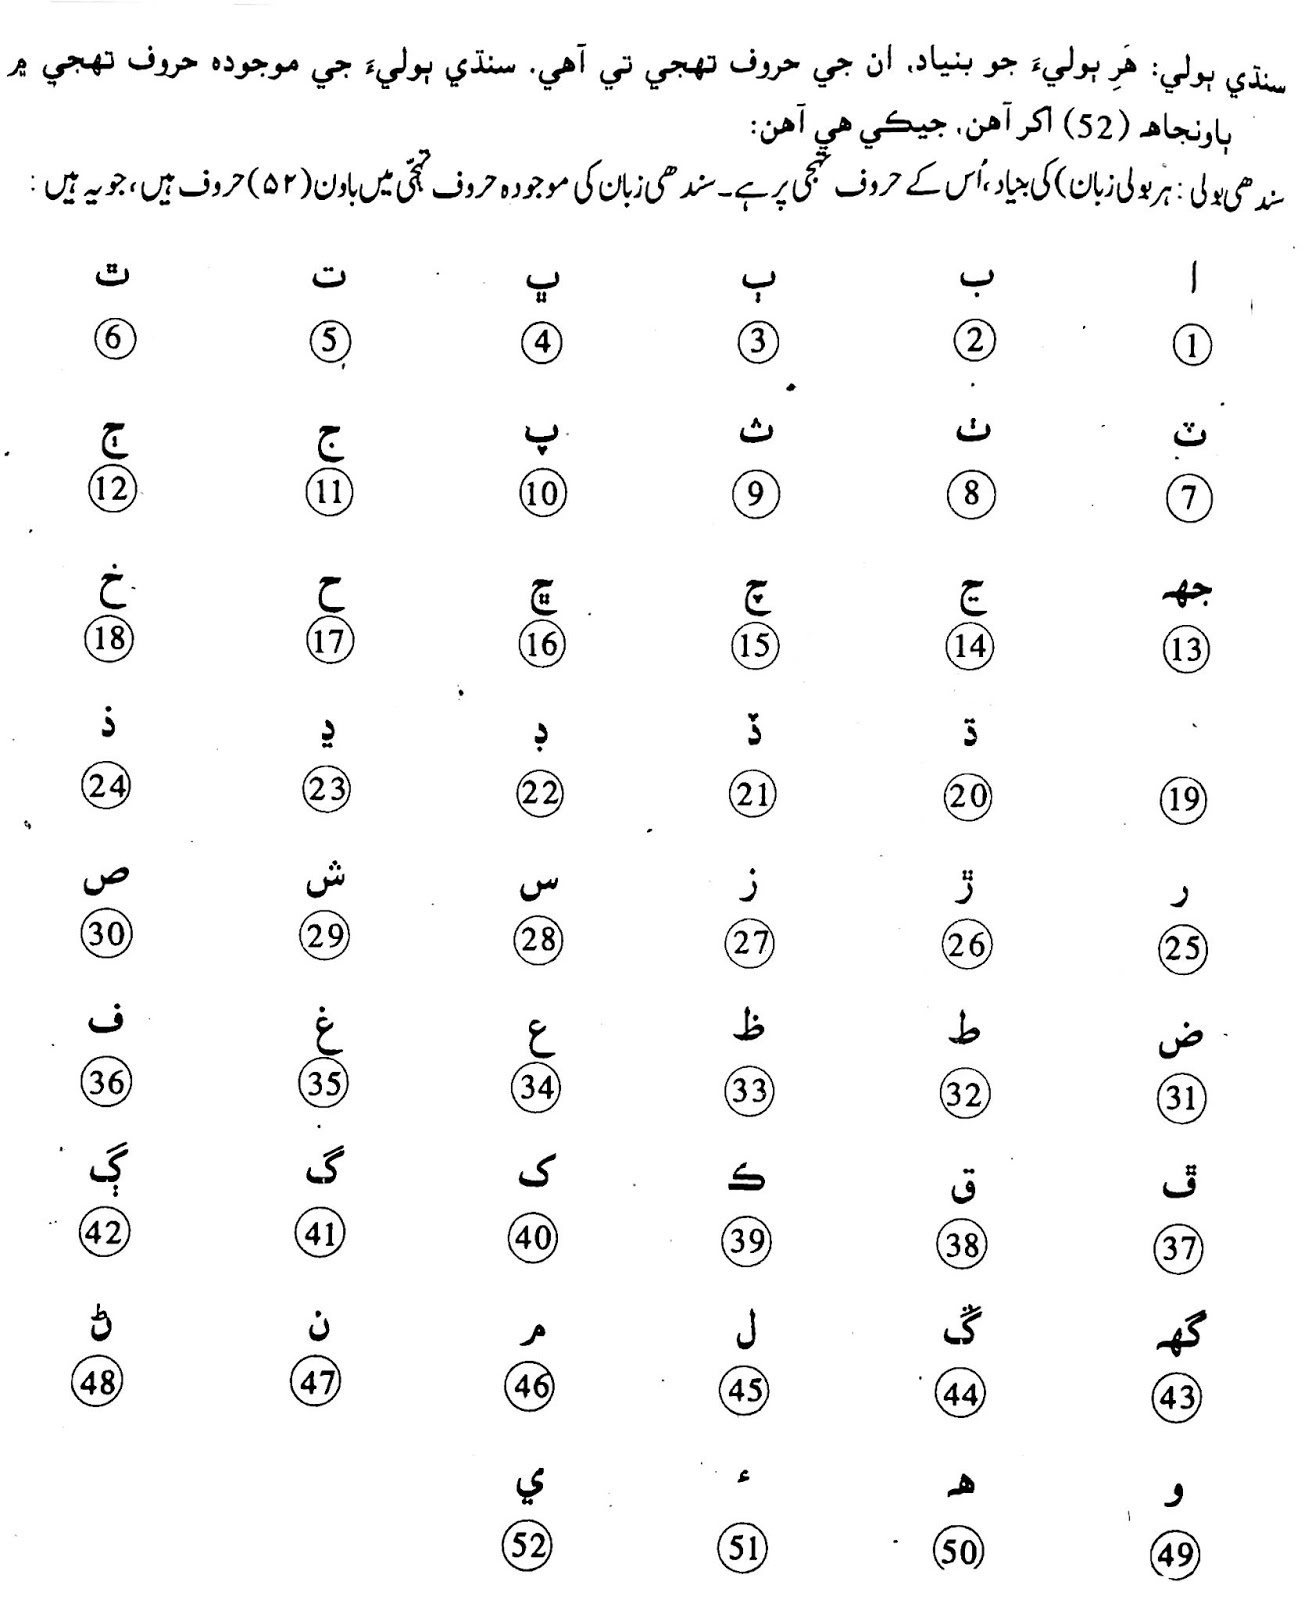 سنڌي ٻولي: هَرِ ٻوليءَ جو بنياد، ان جي حروف تهجي تي آهي. سنڌي ٻوليءَ جي موجوده حروف تهجي ۾
ٻاونجاهه (52) اکر آهن، جيڪي هي آهن:
سندھی بولی: ہر بولی زبان) کی بنیاد، اُس کے حروف تہجی پر ہے۔ سندھی زبان کی موجودہ حروف تہجّی میں باون (۵۲) حروف ہیں، جو یہ ہیں:
ا ب ٻ ڀ ت ٿ
1 2 3 4 5 6
ٽ ٺ ث پ ج ڄ
7 8 9 10 11 12
جهہ ڃ چ ڇ ح خ
13 14 15 16 17 18
ڌ ڏ ڊ ڍ ذ
19 20 21 22 23 24
ر ڙ ز س ش ص
25 26 27 28 29 30
ض ط ظ ع غ ف
31 32 33 34 35 36
ڦ ق ڪ ک گ ڳ
37 38 39 40 41 42
گهہ ڱ ل م ن ڻ
43 44 45 46 47 48
و هہ ء ي
49 50 51 52